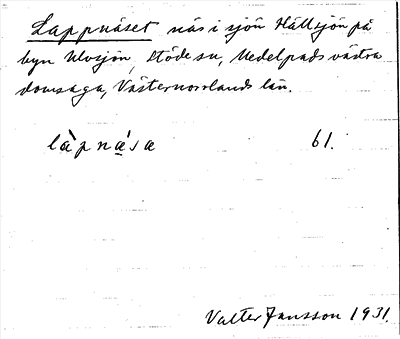 Lappnäset näs i sjön Hällsjön på
byn Ulvsjön, Stöde sn, Medelpads västra
domsaga, Västernorrlands län.
làpnä́sa 61.
Valter Jansson 1931.